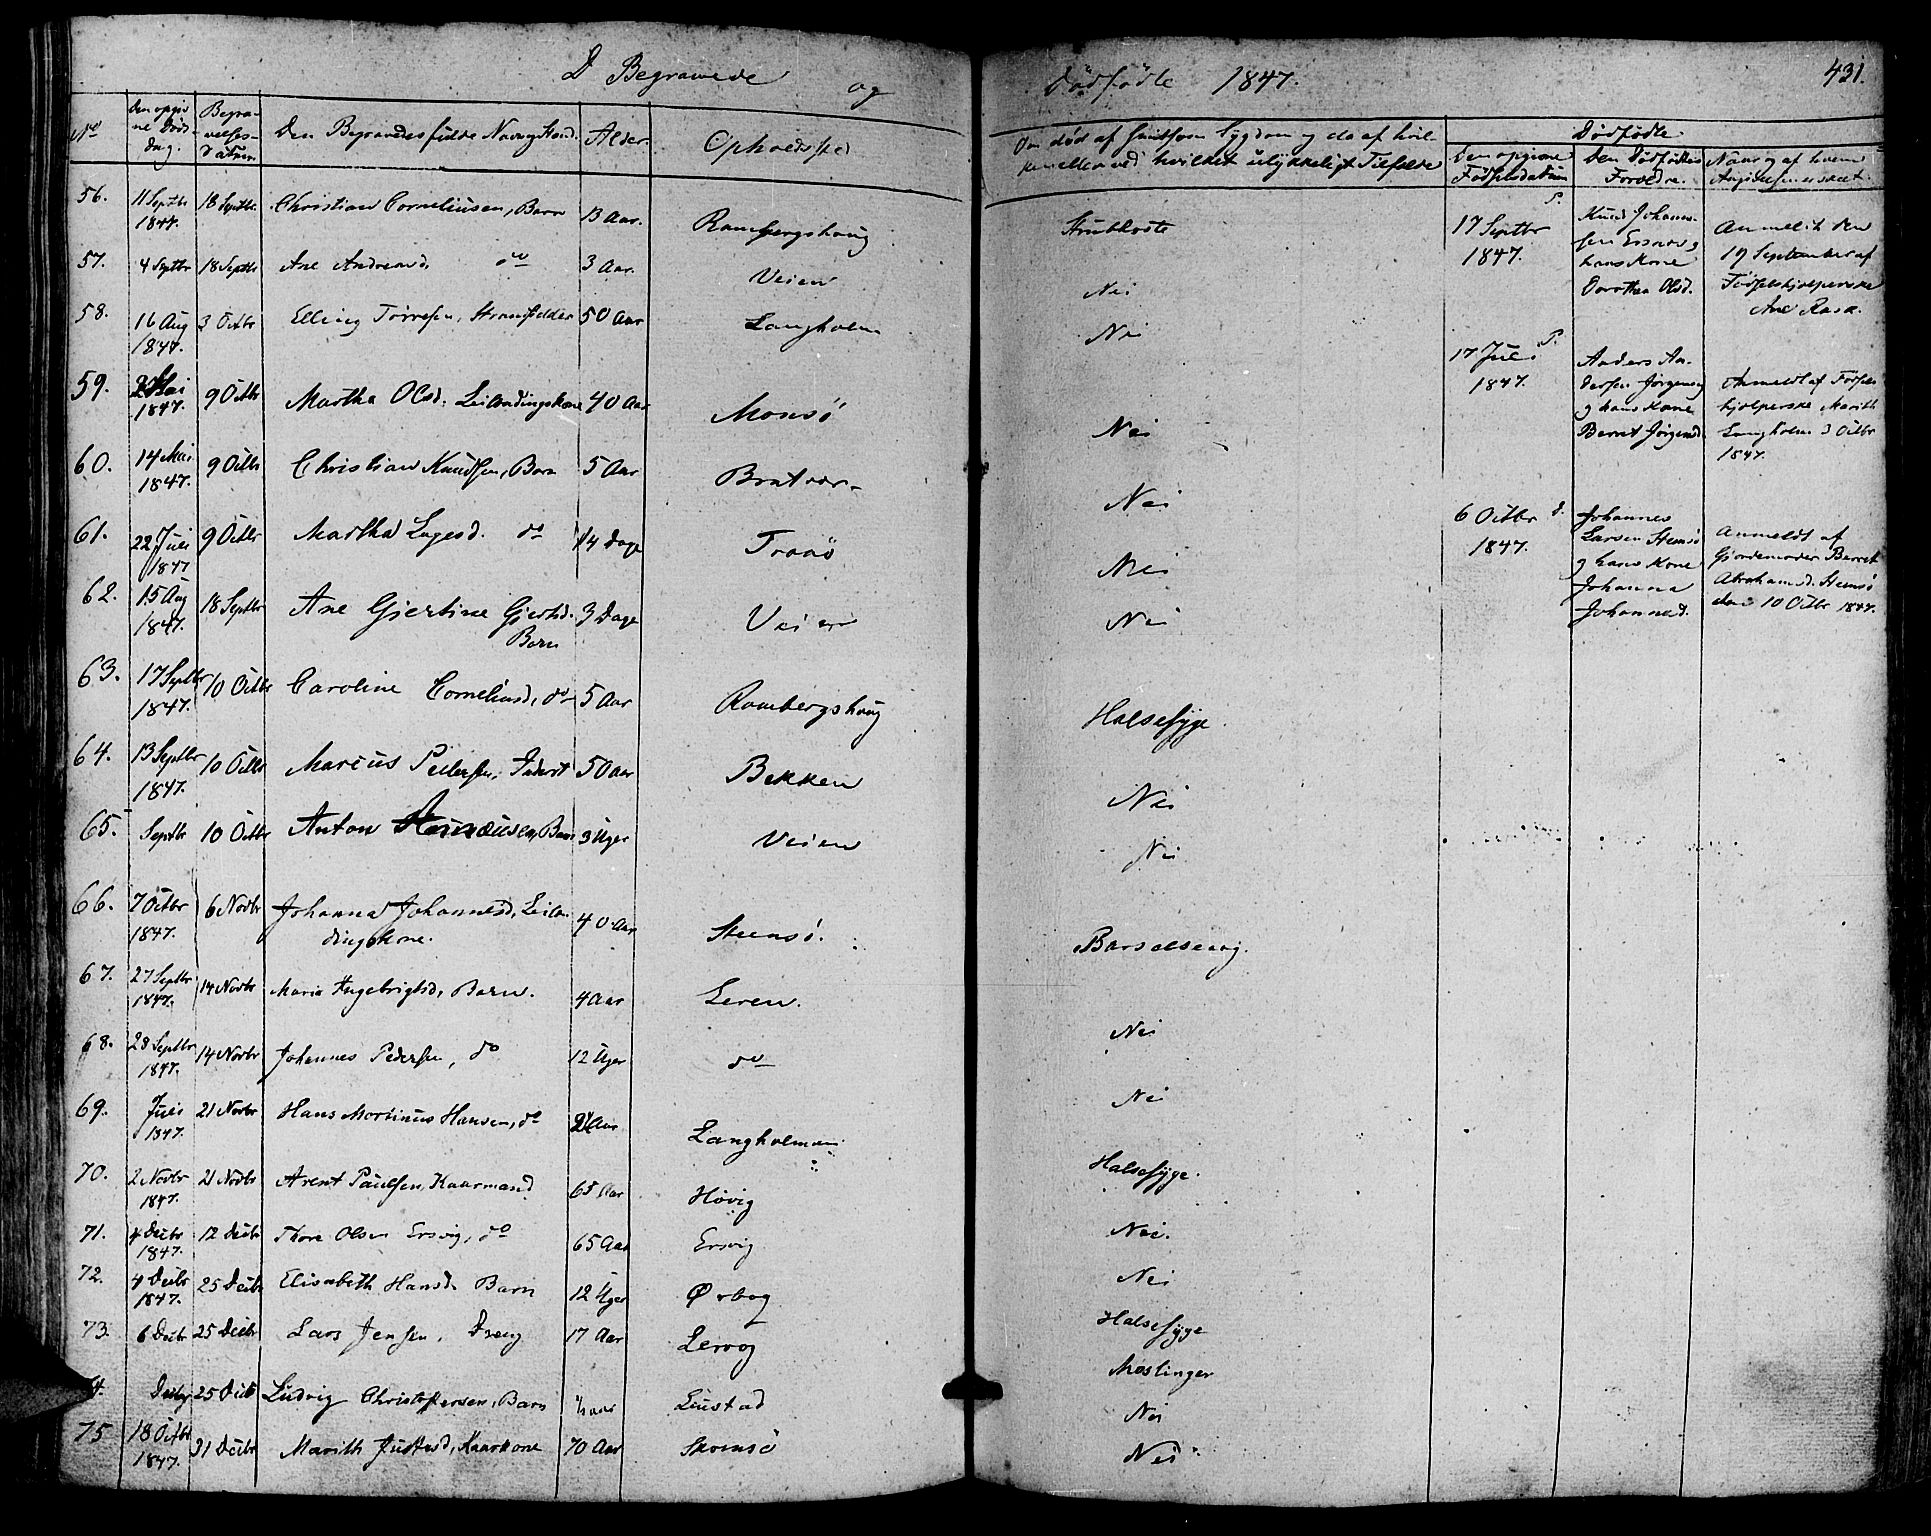 D Begravede og Dødfødte 1847. 431.
No Den opgivne Døds-dag. Begravelses-Datum Den Begravedes fulde Navn og Stand. Alder. Opholdssted
Om død af Smitsom Sygdom og da af hvilken eller ved hvilket ulykkeligt Tilfælde
Dødfødte.
Den opgivne Fødselsdatum Den Dødfødtes Forældre. Naar og af hvem Angivelsen er skeet.
56. 11 Septbr 1847. 18 Septbr. Christian Corneliusen, Barn 13 Aar. Rambergshaug Strubhoste
57. 4 Septbr 18 Septbr Ane Andreasd. do 3 Aar. Veien Nei
58. 16 Aug 1847. 3 Octbr Elling Torresen, Strandsidder 50 Aar Langholm Nei
59. Mai 1847. 9 Octbr Martha Olsd. Leilændingskone 40 Aar Monsö Nei
60. 14 Mai 1847. 9 Octbr Christian Knudsen, Barn 5 Aar Bratvær Nei
61. 22 Juli 1847 9 Octbr Martha do 14 Dage Nei
62. 15 Aug 1847. 18 Septbr Ane Gjertine Gjertsd. Barn 3 Dage Veien Nei
63. 17 Septbr 1847. 10 Octbr Caroline Corneliusd, do 5 Aar Rambergshaug Halsesyge.
64. 13 Septbr 1847. 10 Octbr Marcus Pedersen, Inderst 50 Aar Bekken Nei
65. Septbr 10 Octbr Anton Barn 3 Uger Veien Nei
66. 7 Octbr 1847. 6 Novbr Johanna Johannesd, Leilændingskone. 40 Aar Steensö. Barselseng.
67. 27 Septbr 1847. 14 Novbr Maria Ingebrigtsd, Barn. 4 Aar Leren. Nei
68. 28 Septbr 1847. 14 Novbr Johannes Pedersen, do 12 Uger do Nei
69. Juli 1847. 21 Novbr Hans Martinus Hansen, do Aar Langholmen Halsesyge.
70. 2 Novbr 1847. 21 Novbr Arent Paulsen, Kaarmand 65 Aar Hövig Nei.
71. 4 Decbr 1847. 12 Decbr Thore Olsen Ersvig, do 65 Aar Ersvig Nei
72. 4 Decbr 1847. 25 Decbr Elisabeth Hansd. Barn 12 Uger Ørbog Halsesyge
73. 6 Decbr 25 Decbr Lars Jensen, Dreng 17 Aar Lervog Meslinger
74. Decbr 25 Decbr Ludvig Christophersen, Barn ½ aar Liustad Nei
75 18 Octbr 1847. 31 Decbr Marith Justesd, Kaarkone 70 Aar Skomsö Nei
P.
17 Septbr 1847. Knud Johannesen Ersnes og hans Kone Dorothea Olsd. Anmeldt den 19 September af Fødselshjelperske Ane Rasa.
P.
17 Juli 1847. Anders Andersen og hans Kone Berret Jørgensd. Anmeldt af Fødselshjelperske Marith Langholm 3 Octbr 1847.
6 Octbr 1847. d. Johannes Larsen Stensö og hans Kone Johanna Johannesd. Anmeldt af Gjordemoder Berret Abrahamsd. Stensö den 10 Octbr 1847.